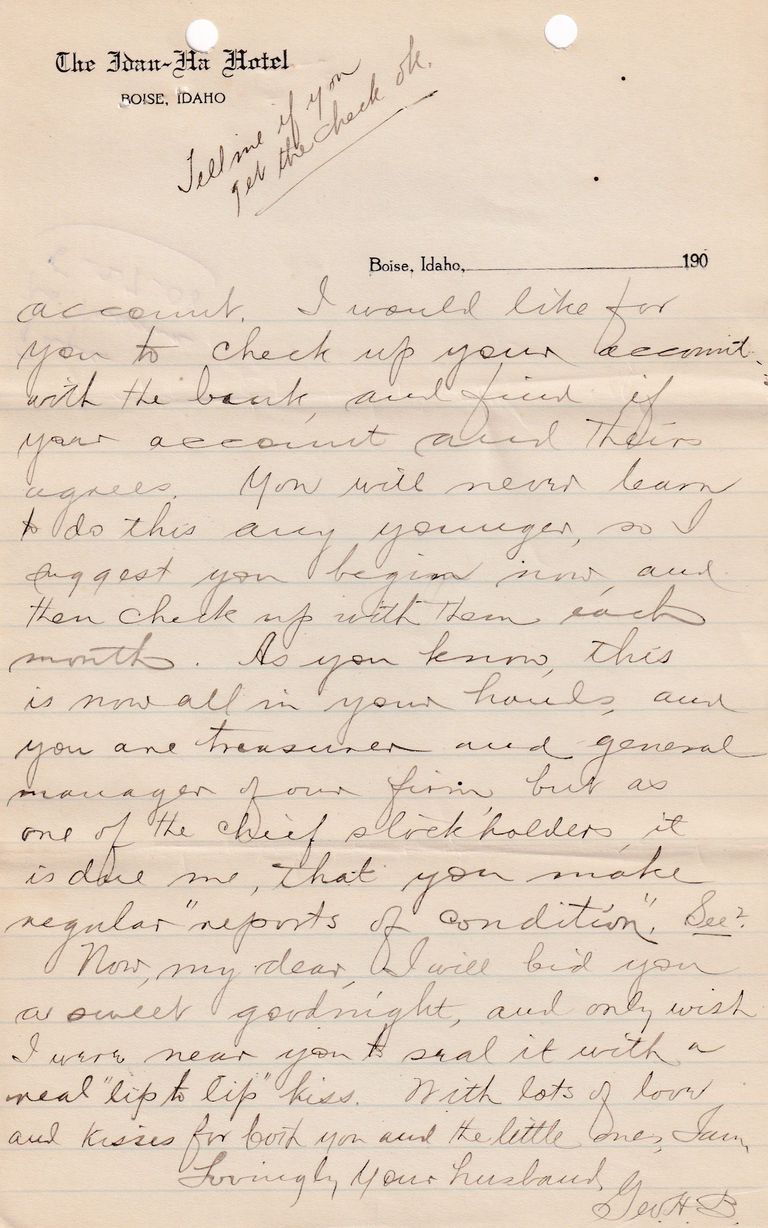 The Idan-Ha Hotel
BOISE, IDAHO
Tell me if you
get the check ok.
Boise, Idaho, 190
account. I would like for
you to check up your account
with the bank, and find if
your account and theirs
agrees. You will never learn
to do this any younger, so I
suggest you begin now, and
then check up with them each
month. As you know, this
is now all in your hands, and
you are treasurer and general
manager of our firm, but as
one of the chief stockholders, it
is due me, that you make
regular "reports of condition". See?
Now, my dear, I will bid you
a sweet goodnight, and only wish
I were near you to seal it with a
real "lip to lip" kiss. With lots of love
and kisses for both you and the little ones, I am,
Lovingly Your husband,
Geo. H. B.